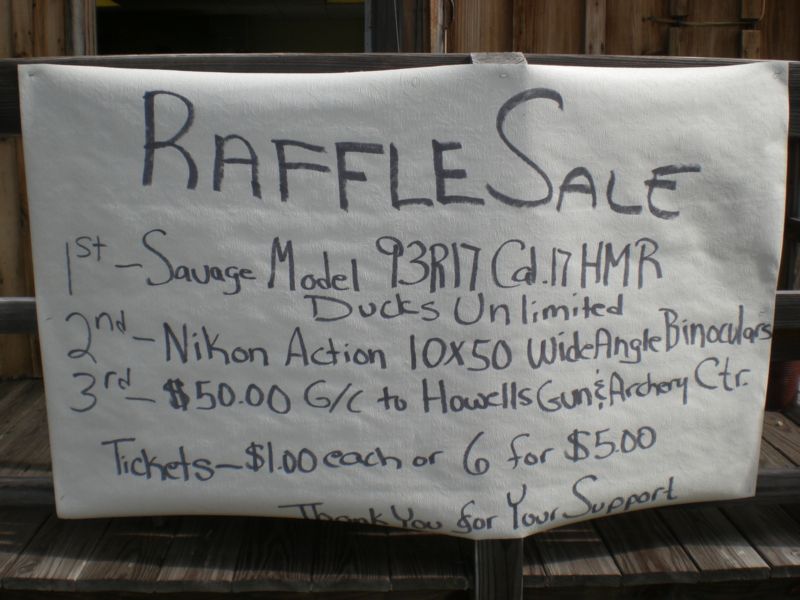 RAFFLE SALE
1st - Savage Model 93R17 Cal .17 HMR
Ducks Unlimited
2nd - Nikon Action 10x50 Wide Angle Binoculars
3rd - $50.00 G/C to Howells Gun & Archery Ctr.
Tickets - $1.00 each or 6 for $5.00
Thank You for Your Support